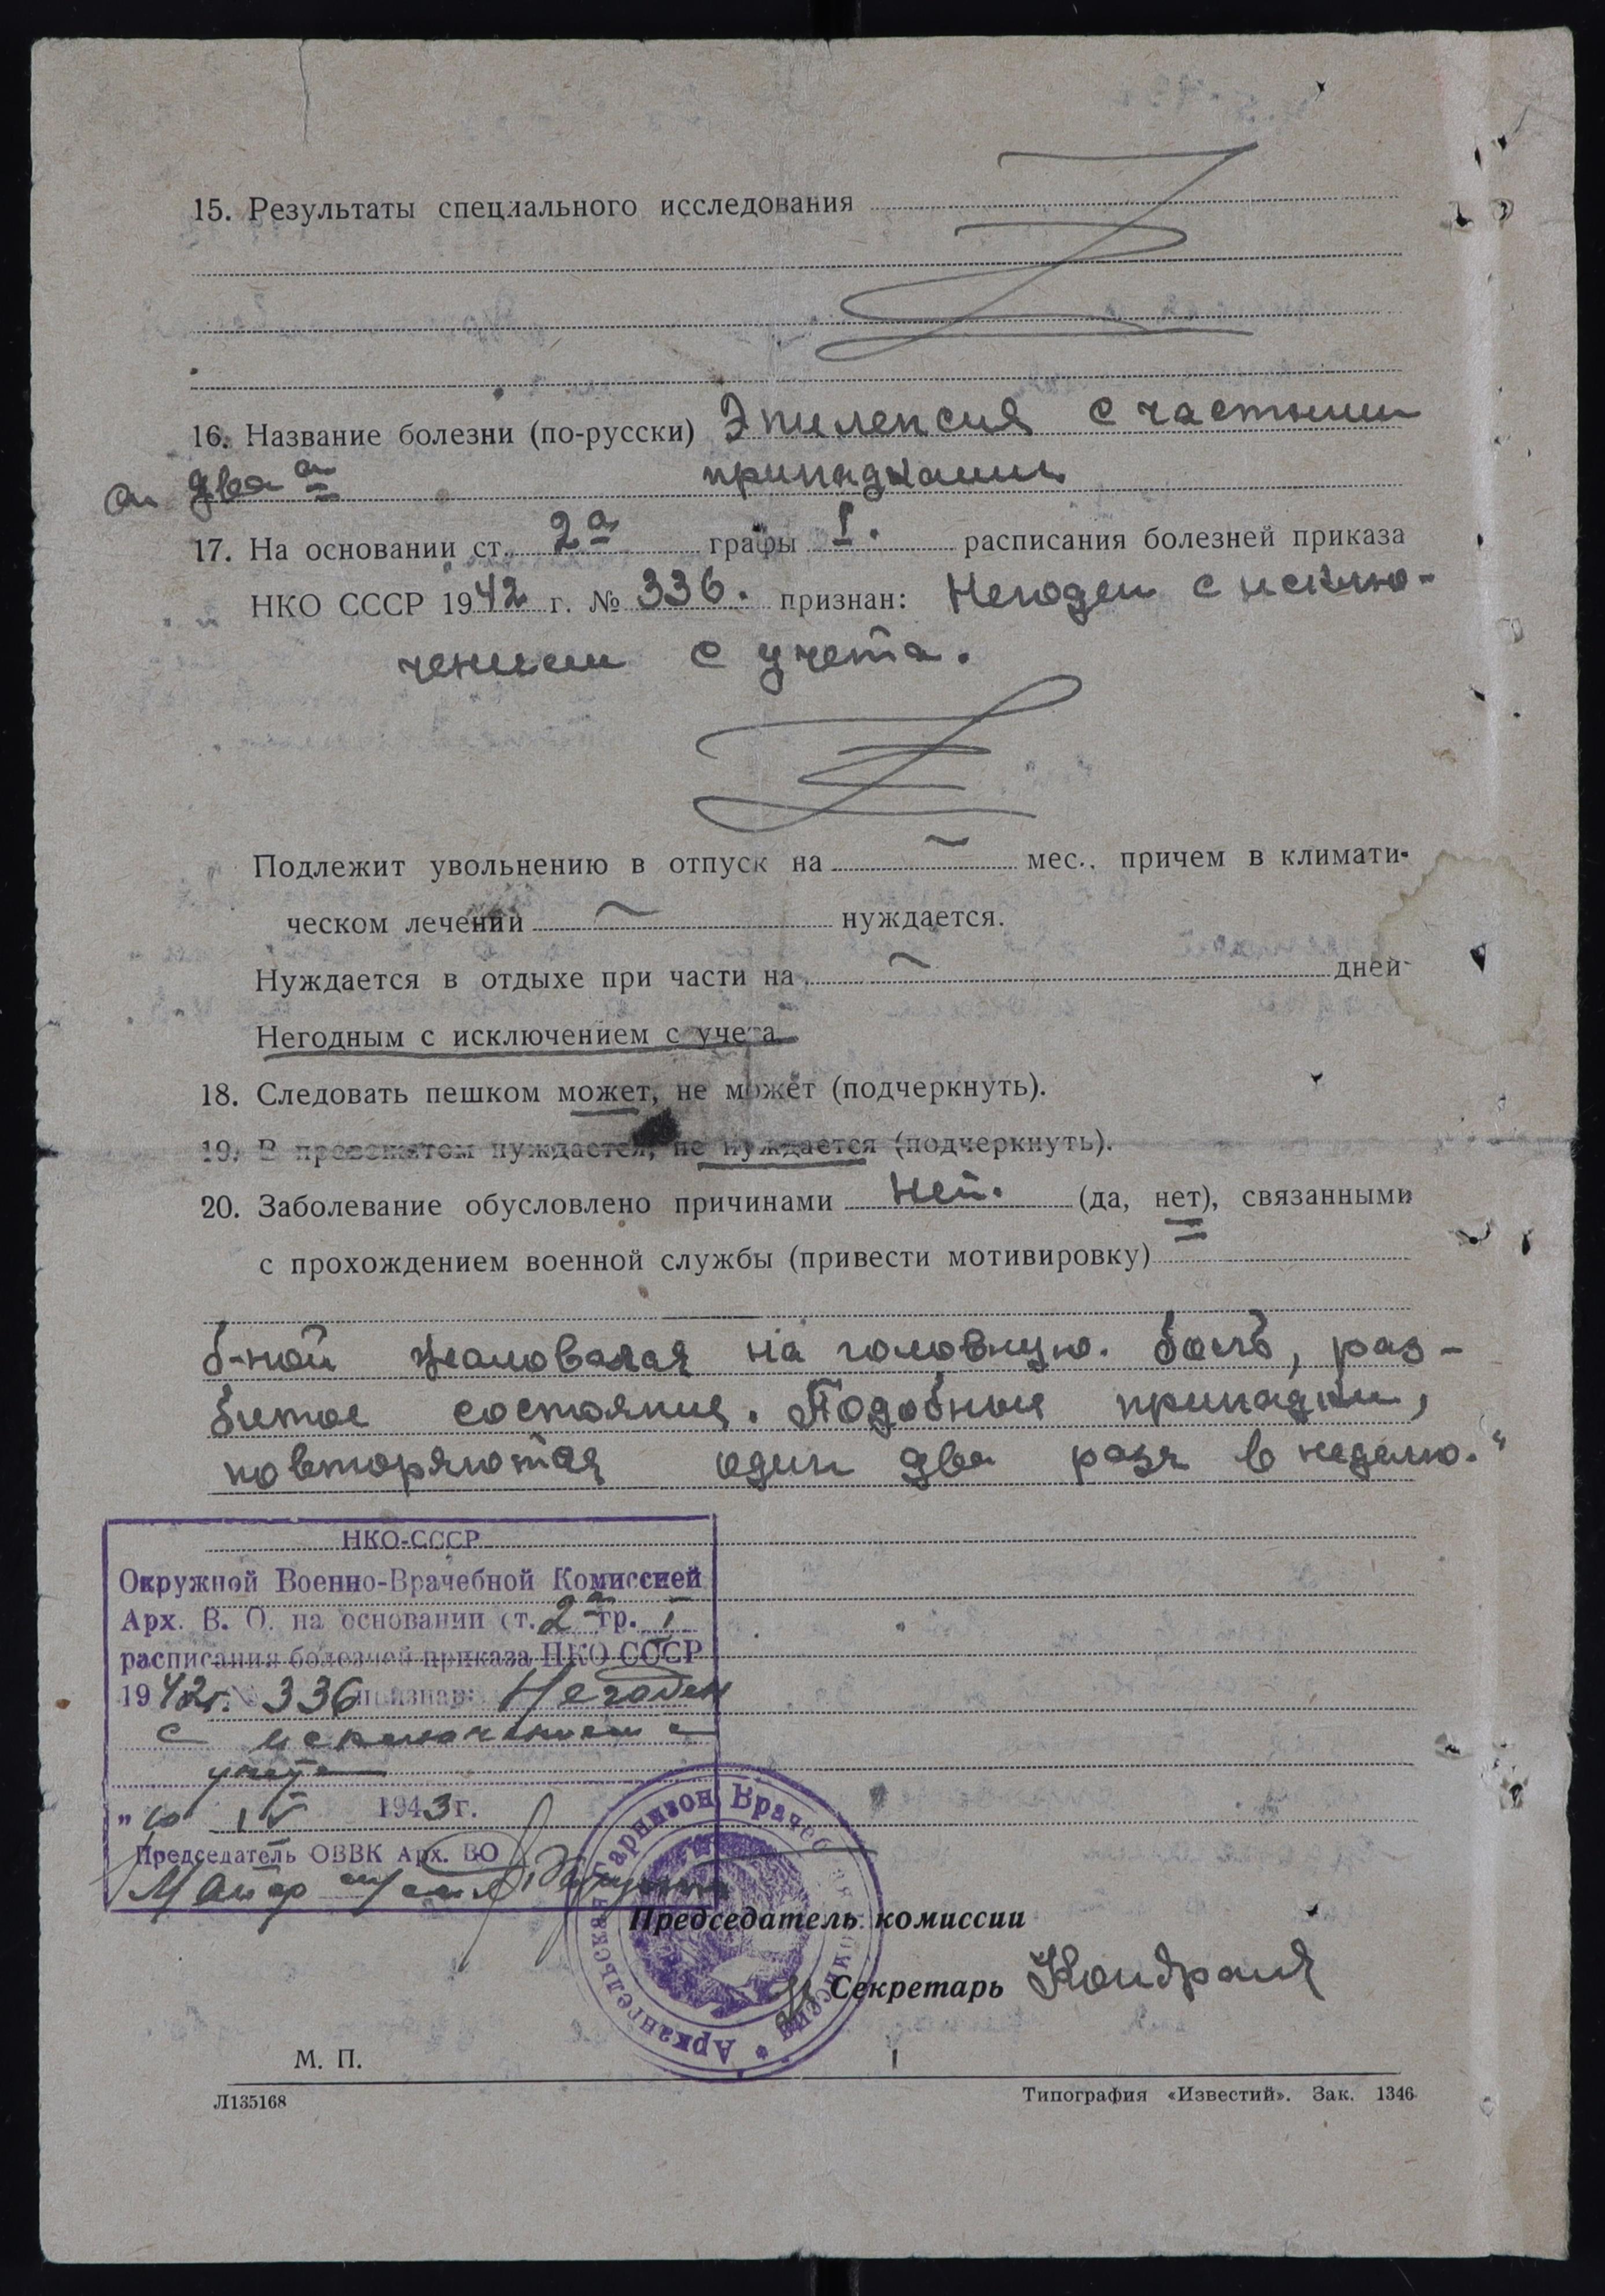 15. Результаты специального исследования
16. Название болезни (по-русски) Эпилепсия с частыми
два а припадками
17. На основании ст. 2а графы I. расписания болезней приказа
НКО СССР 1942 г. № 336. признан: Негоден с исклю-
чением с учета.
Подлежит увольнению в отпуск на ~ мес., причем в климати-
ческом лечении ~ нуждается.
Нуждается в отдыхе при части на ~ дней
Негодным с исключением с учета.
18. Следовать пешком может, не может (подчеркнуть).
19. В провожатом нуждается, не нуждается (подчеркнуть).
20. Заболевание обусловлено причинами Нет. (да, нет), связанными
с прохождением военной службы (привести мотивировку)
б-ной жаловался на головную боль, раз-
битое состояния. Подобные припадки,
повторяются один два раза в неделю."
НКО-СССР
Окружной Военно-Врачебной Комиссией
Арх. В. О. на основании ст. 2а гр. I
расписания болезней приказа НКО СССР
1942г. № 336 признан: Негоден
с исключением с
учета
" IV 1943 г.
Председатель ОВВК Арх. ВО
Майор
Архангельская Гарнизон Врачеб комиссия
Председатель комиссии
Секретарь
М. П.
Л135168 Типография «Известий». Зак. 1346